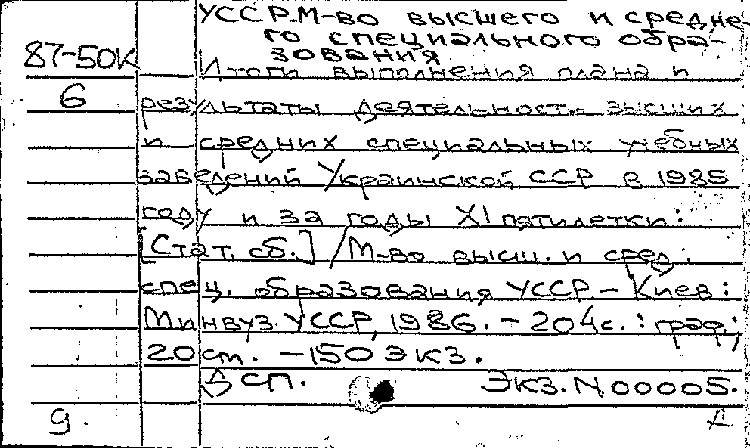 УССР. М-во высшего и средне
го специального обра-
87-50К зования
Итоги выполнения плана и
6 результаты деятельности высших
и средних специальных учебных
заведений Украинской ССР в 1985
году и за годы XI пятилетки:
[Стат. сб.] / М-во высш. и сред.
спец. образования УССР. - Киев:
Минвуз. УССР, 1986. - 204с.: граф.;
20 см. - 150 экз.
ДСП. Экз. N 00005.
9. Д